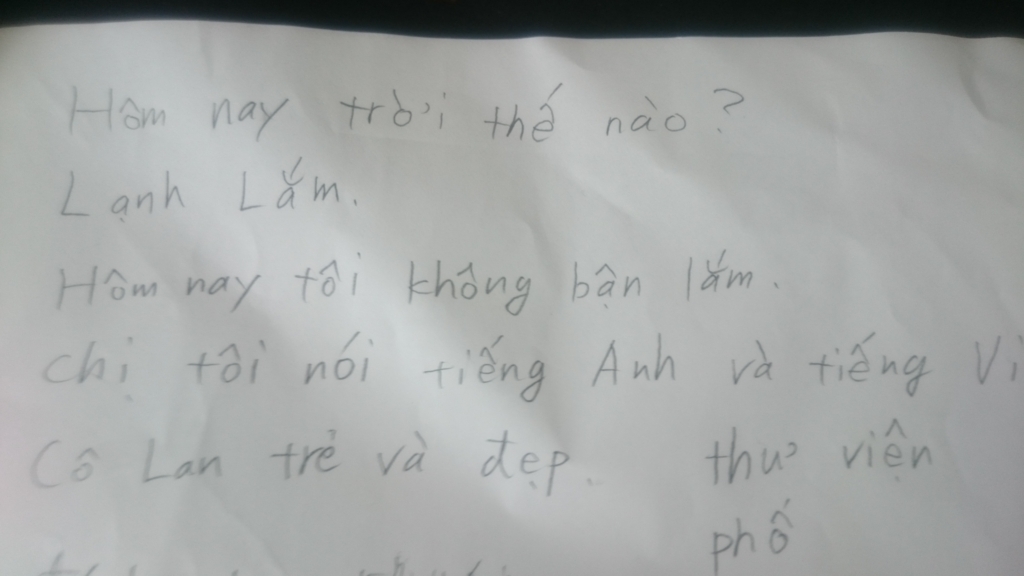 Hôm nay trời thế nào?
Lạnh Lắm.
Hôm nay tôi không bận lắm.
Chị tôi nói tiếng Anh và tiếng
Cô Lan trẻ và đẹp. thư viện
phố